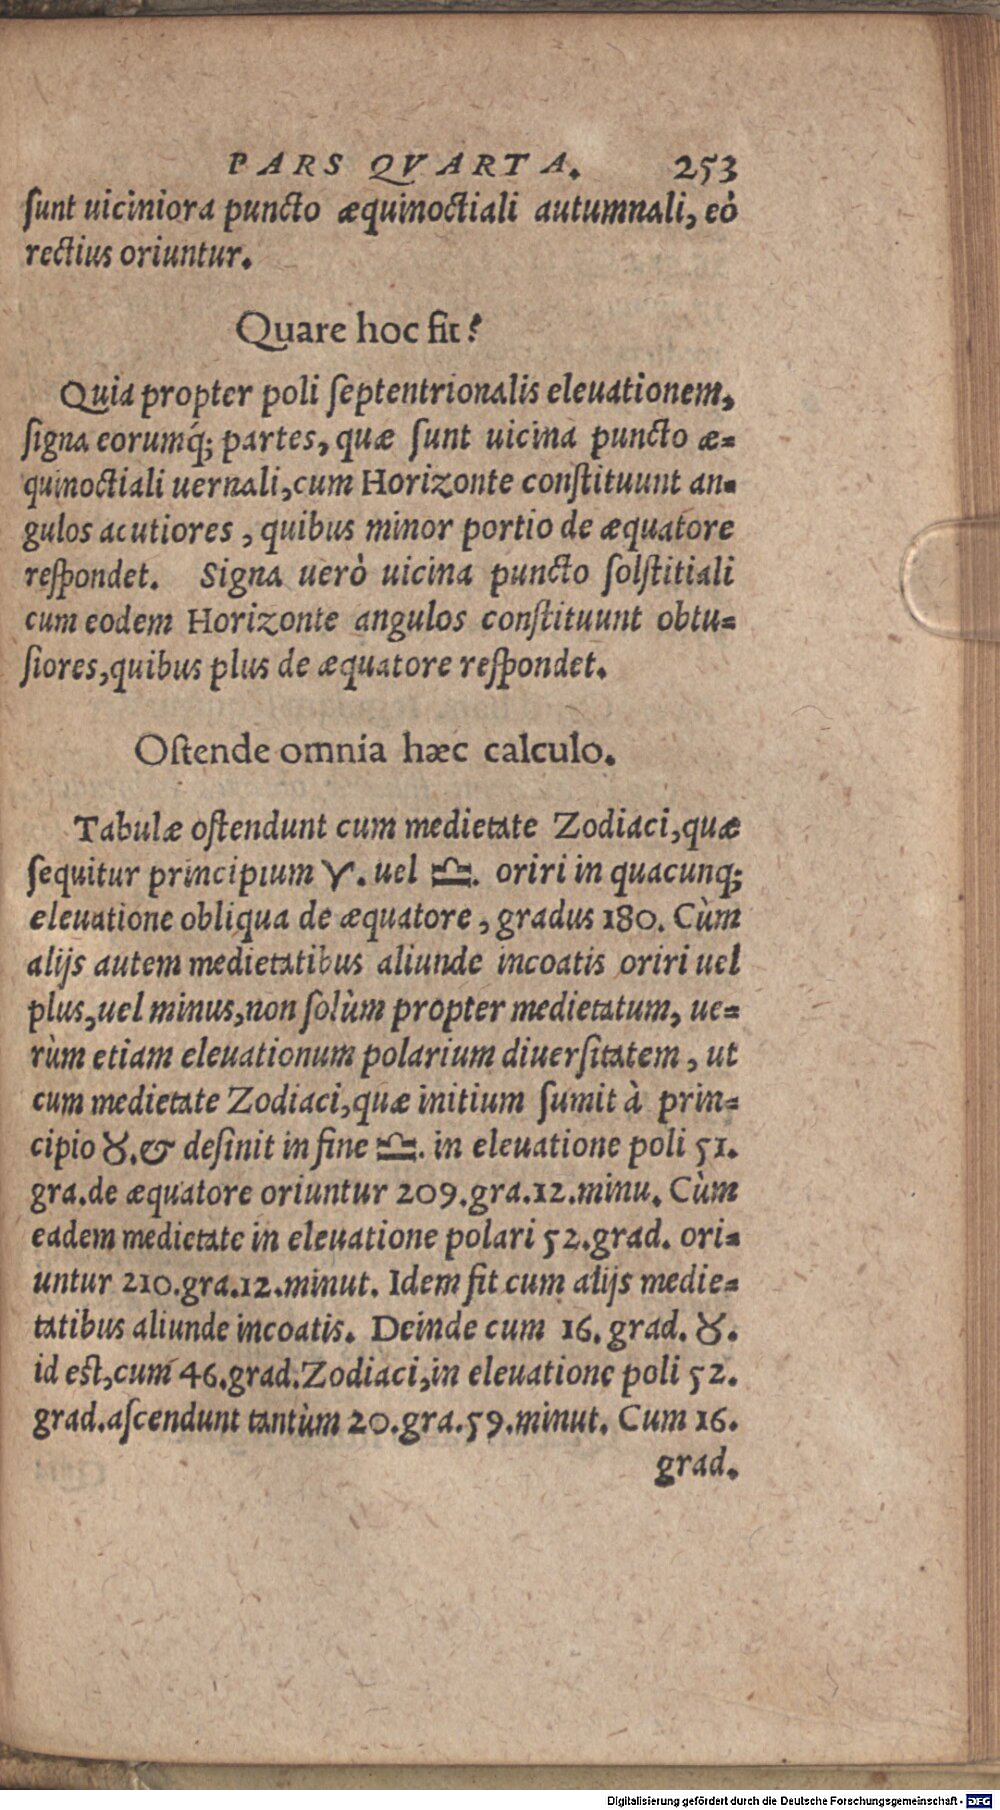 PARS QVARTA. 253
sunt uiciniora puncto æquinoctiali autumnali, eò
rectius oriuntur.
Quare hoc fit?
Quia propter poli septentrionalis eleuationem,
signa eorumq́; partes, quæ sunt uicina puncto æ-
quinoctiali uernali, cum Horizonte constituunt an-
gulos acutiores, quibus minor portio de æquatore
respondet. Signa uerò uicina puncto solstitiali
cum eodem Horizonte angulos constituunt obtu-
siores, quibus plus de æquatore respondet.
Ostende omnia hæc calculo.
Tabulæ ostendunt cum medietate Zodiaci, quæ
sequitur principium ♈. uel ♎. oriri in quacunq;
eleuatione obliqua de æquatore, gradus 180. Cùm
alijs autem medietatibus aliunde incoatis oriri uel
plus, uel minus, non solùm propter medietatum, ue-
rùm etiam eleuationum polarium diuersitatem, ut
cum medietate Zodiaci, quæ initium sumit à prin-
cipio ♉. & desinit in fine ♎. in eleuatione poli 51.
gra. de æquatore oriuntur 209. gra. 12. minu. Cùm
eadem medietate in eleuatione polari 52. grad. ori-
untur 210. gra. 12. minut. Idem fit cum alijs medie-
tatibus aliunde incoatis. Deinde cum 16. grad. ♉.
id est, cum 46. grad. Zodiaci, in eleuatione poli 52.
grad. ascendunt tantùm 20. gra. 59. minut. Cum 16.
grad.
Digitalisierung gefördert durch die Deutsche Forschungsgemeinschaft - DFG